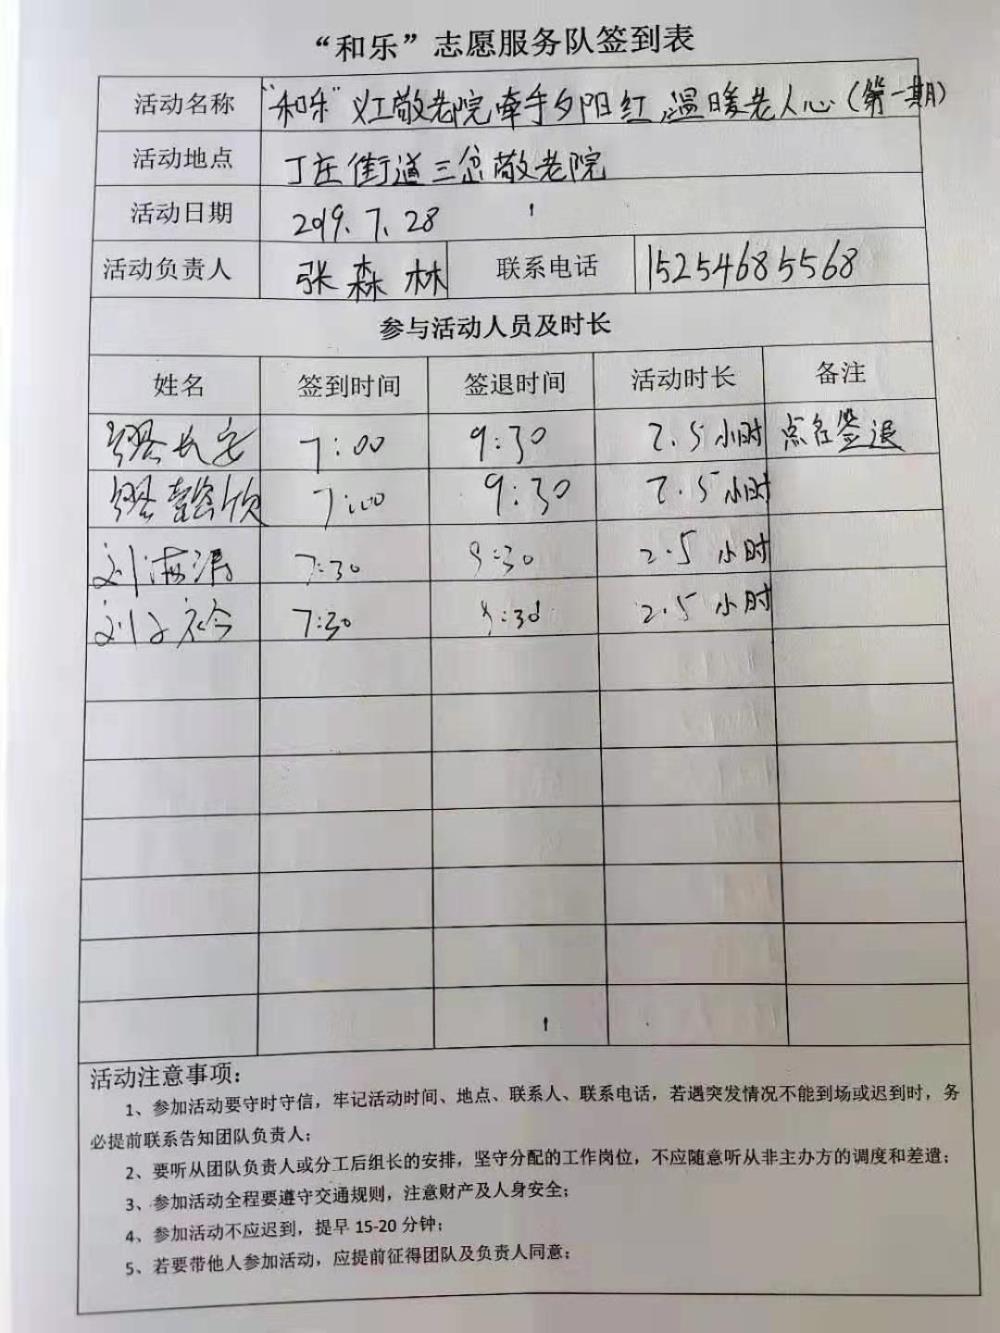 “和乐”志愿服务队签到表
活动名称 “和乐”义工敬老院牵手夕阳红,温暖老人心(第一期)
活动地点 丁庄街道三岔敬老院
活动日期 2019.7.28
活动负责人 张森林 联系电话 15254685568
参与活动人员及时长
姓名 签到时间 签退时间 活动时长 备注
长安 7:00 9:30 2.5小时 点名签退
欣 7:00 9:30 2.5小时
刘海涛 7:30 9:30 2.5小时
刘 7:30 9:30 2.5小时
活动注意事项:
1、参加活动要守时守信,牢记活动时间、地点、联系人、联系电话,若遇突发情况不能到场或迟到时,务
必提前联系告知团队负责人;
2、要听从团队负责人或分工后组长的安排,坚守分配的工作岗位,不应随意听从非主办方的调度和差遣;
3、参加活动全程要遵守交通规则,注意财产及人身安全;
4、参加活动不应迟到,提早 15-20 分钟;
5、若要带他人参加活动,应提前征得团队及负责人同意;